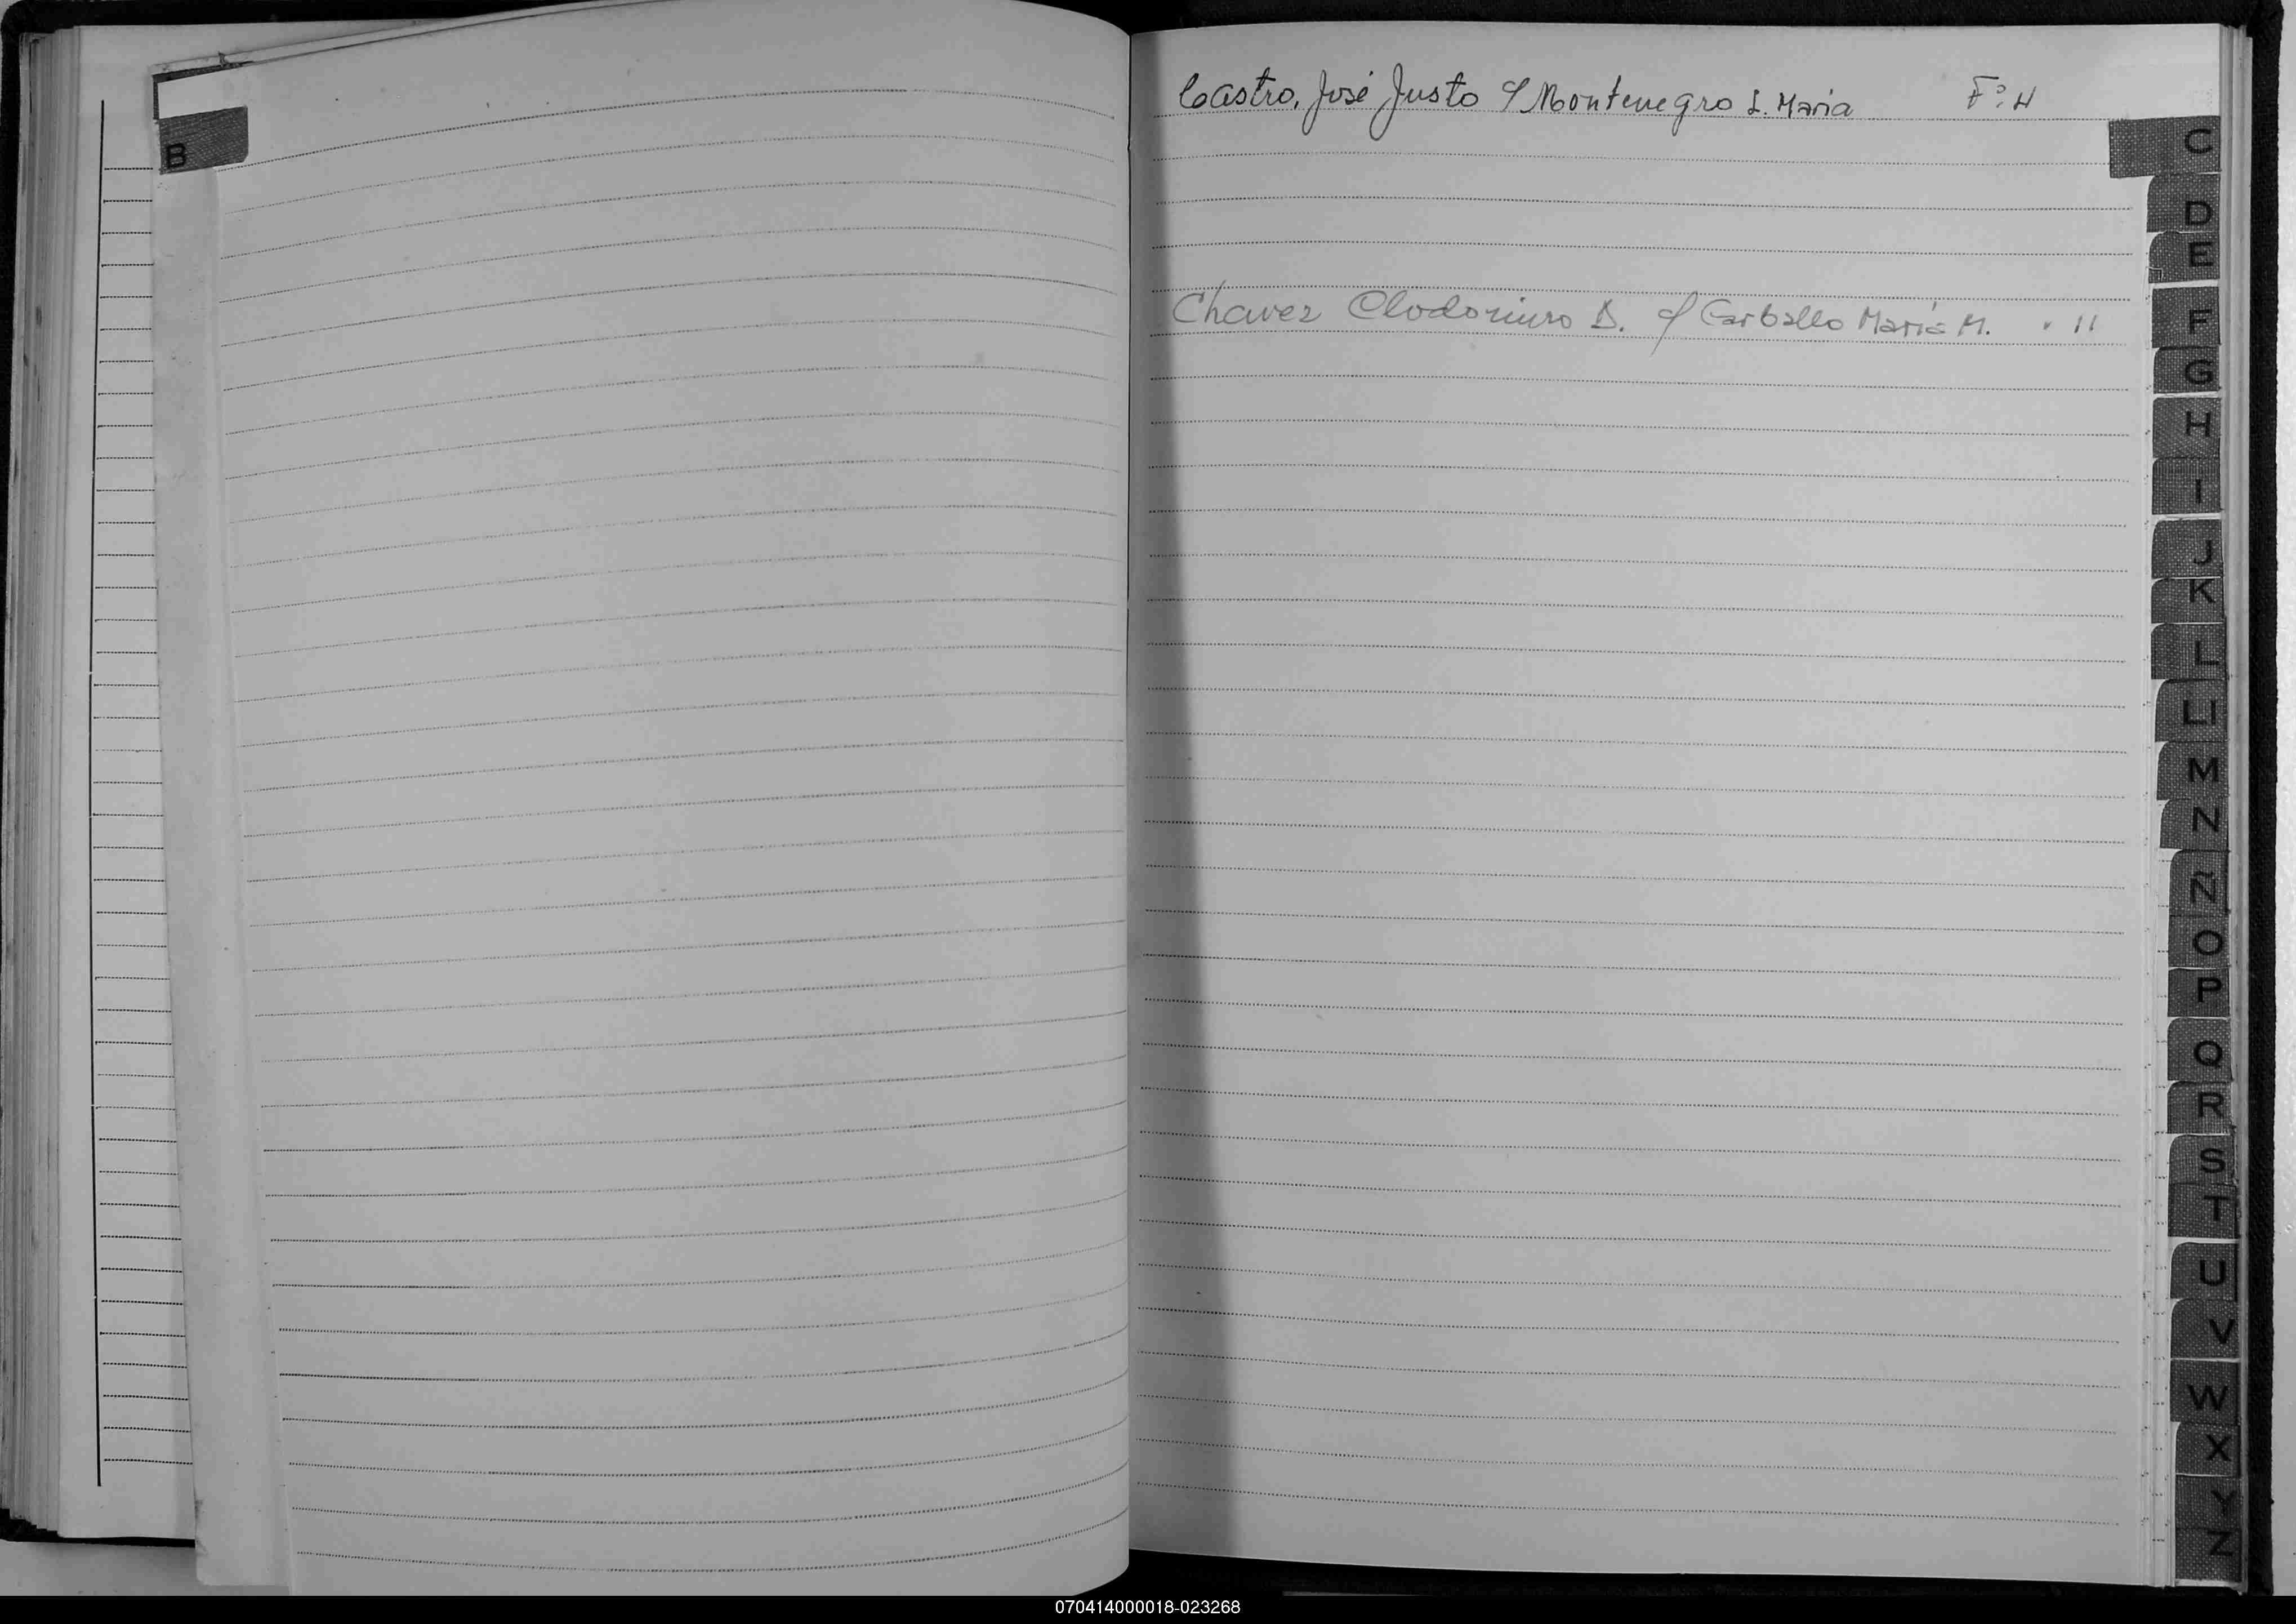 B
Castro, José Justo c/ Montenegro S. María Fº: 4
C
D
E
Chavez Clodomiro D. c/ Carballo María M. " 11
F
G
H
I
J
K
L
Ll
M
N
Ñ
O
P
Q
R
S
T
U
V
W
X
Y
Z
070414000018-023268